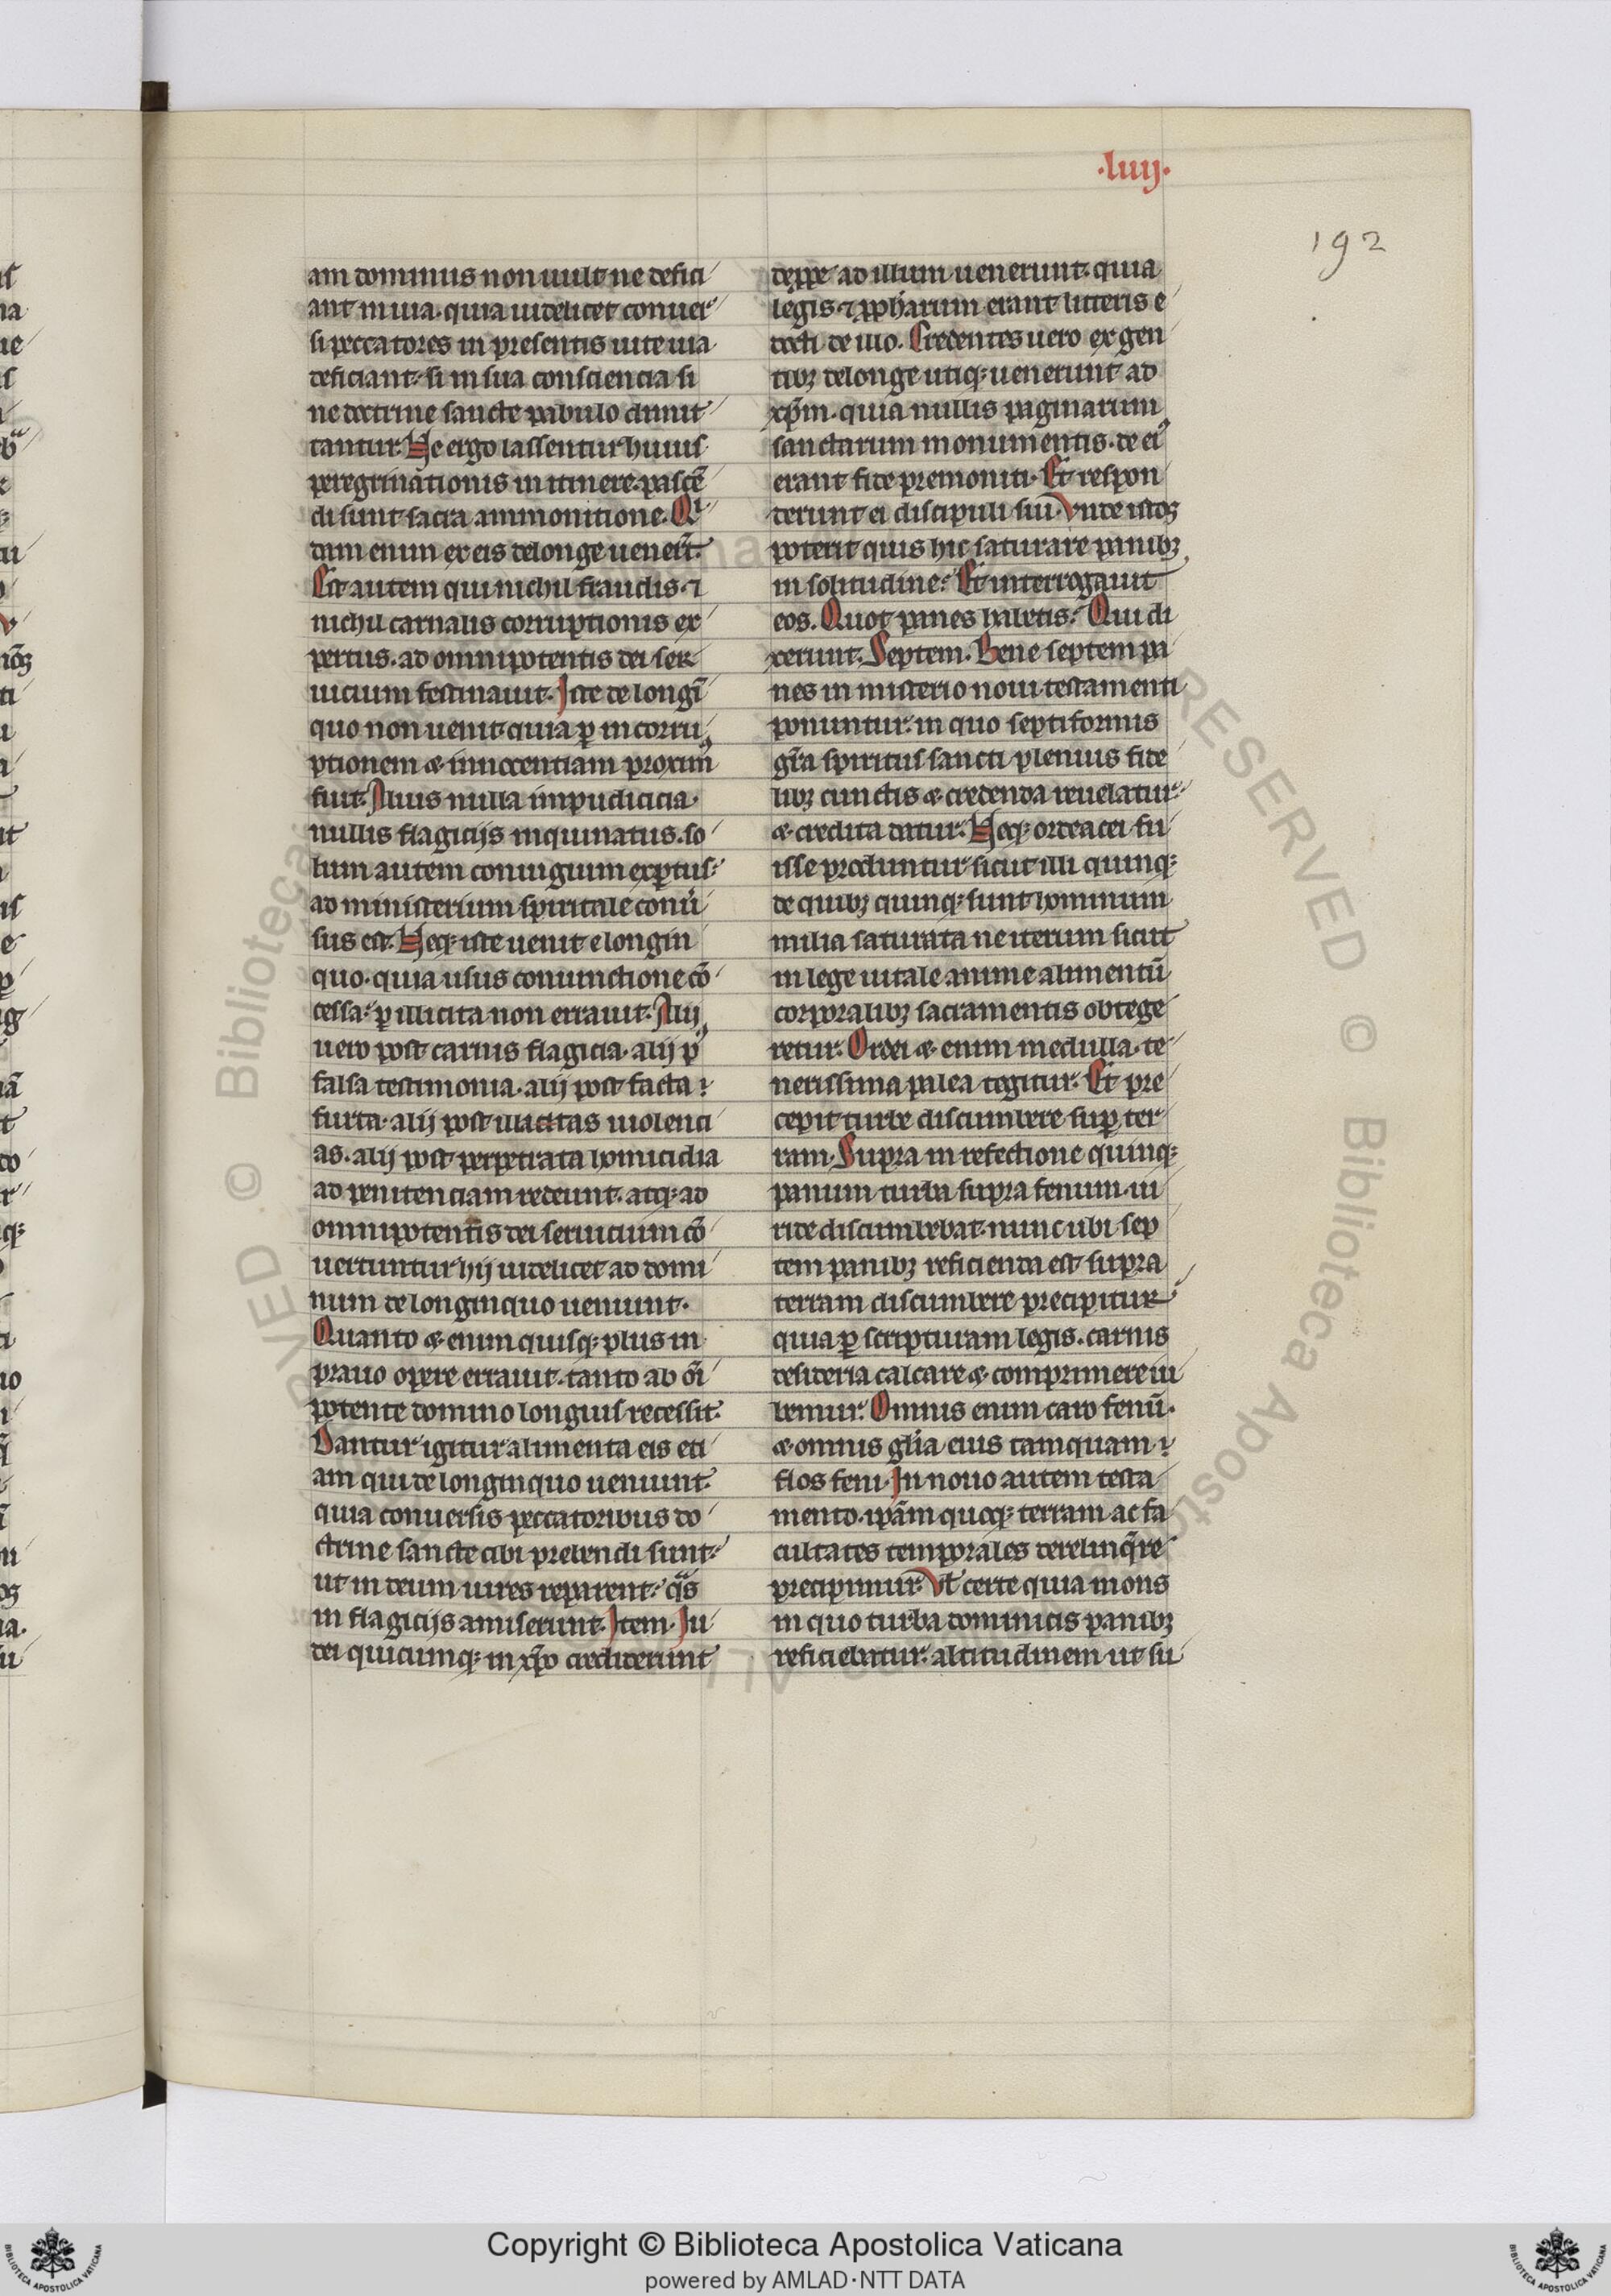 ·luij·
192
am dominus non uult ne defici
ant in uia. quia uidelicet conuer
si peccatores in presentis uite uia
deficiant. si in sua consciencia si
ne doctrine sancte pabulo dimit
tantur. Ne ergo lassentur huius
peregrinationis in itinere. pascē
di sunt sacra ammonitione. Qⁱ
dam enim ex eis delonge uener̄t.
Est autem qui nichil fraudis. ⁊
nichil carnalis corruptionis ex
pertus. ad omnipotentis dei ser
uicium festinauit. Iste de longī
quo non uenit quia ꝑ incorru
ptionem & innocentiam proximꝰ
fuit. Alius nulla impudicicia.
nullis flagicijs inquinatus. so
lum autem coniugium exꝑtus.
ad ministerium spiritale conu̓
sus est. Neqꝫ iste uenit e longin
quo. quia usus coniunctione cō
cessa. ꝑ illicita non errauit. Alij
uero post carnis flagicia. alij pꝰ
falsa testimonia. alij post facta
furta. alij post illicitas uiolenci
as. alij post perpetrata homicidia
ad penitenciam redeunt. atqꝫ ad
omnipotentis dei seruicium cō
uertuntur hij uidelicet ad domi
num de longinquo ueniunt.
Quanto & enim quisqꝫ plus in
prauo opere errauit. tanto ab oī
potente domino longius recessit.
Dantur igitur alimenta eis eti
am qui de longinquo ueniunt.
quia conuersis peccatoribus do
ctrine sancte cibi prebendi sunt.
ut in deum uires reparent. qᵃs
in flagicijs amiserunt. Item. Iu
dei quicumqꝫ in xp̄o crediderunt
deꝓpe ad illum uenerunt. quia
legis. ⁊ ꝓph̄arum erant litteris e
docti de illo. Credentes uero ex gen
tibꝫ delonge utiqꝫ uenerunt ad
xp̄m. quia nullis paginarum
sanctarum monumentis. de eiꝰ
erant fide premoniti. Et respon
derunt ei discipuli sui. Vnde istos
poterit quis hic saturare panibꝫ
in solitudine. Et interrogauit
eos. Quot panes habetis. Qui di
xerunt. Septem. Bene septem pa
nes in misterio noui testamenti
ponuntur. in quo septiformis
gr̄a spiritus sancti plenius fide
libꝫ cunctis & credenda reuelatur.
& credita datur. Neqꝫ ordeacei fu
isse produntur sicut illi quinqꝫ
de quibꝫ quinqꝫ sunt hominum
milia saturata ne iterum sicut
in lege uitale anime alimentū
corporalibꝫ sacramentis obtege
retur. Ordei & enim medulla. te
nerissima palea tegitur. Et pre
cepit turbe discumbere suꝑ ter
ram. Supra in refectione quinqꝫ
panum turba supra fenum ui
ride discumbebat. nunc ubi sep
tem panibꝫ reficienda est supra
terram discumbere precipitur
quia ꝑ scripturam legis. carnis
desideria calcare & comprimere iu
bemur. Omnis enim caro fenū.
& omnis gl̄ia eius tamquam
flos feni. In nouo autem testa
mento. ip̄am quoqꝫ terram ac fa
cultates temporales derelinq̄re
precipimur. Vl̄ certe quia mons
in quo turba dominicis panibꝫ
reficiebatur. altitudinem ut su
Copyright © Biblioteca Apostolica Vaticana
powered by AMLAD·NTT DATA